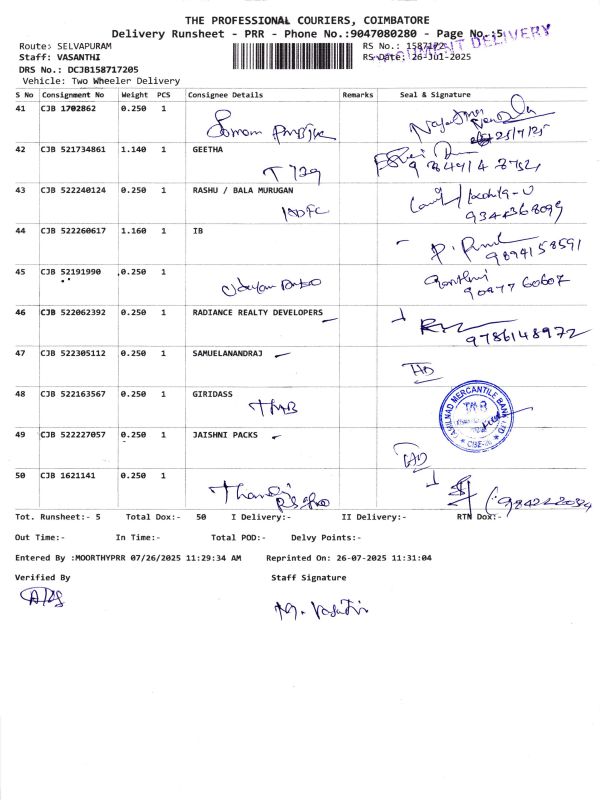 THE PROFESSIONAL COURIERS, COIMBATORE
Delivery Runsheet - PRR - Phone No.:9047080280 - Page No.:5
Route: SELVAPURAM
RS No.: 1587172
DOCUMENT DELIVERY
Staff: VASANTHI
RS Date: 26-Jul-2025
DRS No.: DCJB158717205
Vehicle: Two Wheeler Delivery
S No Consignment No Weight PCS Consignee Details Remarks Seal & Signature
41 CJB 1702862 0.250 1
25/7/25
42 CJB 521734861 1.140 1 GEETHA
T 729
43 CJB 522240124 0.250 1 RASHU / BALA MURUGAN
9344368099
44 CJB 522260617 1.160 1 IB
9894158591
45 CJB 52191990 0.250 1
90477 60607
46 CJB 522062392 0.250 1 RADIANCE REALTY DEVELOPERS
9786148972
47 CJB 522305112 0.250 1 SAMUELANANDRAJ
HD
48 CJB 522163567 0.250 1 GIRIDASS
TMB
TAMILNAD MERCANTILE BANK LTD
TMB
49 CJB 522227057 0.250 1 JAISHNI PACKS
HD
50 CJB 1621141 0.250 1
Tot. Runsheet:- 5 Total Dox:- 50 I Delivery:- II Delivery:- RTN Dox:-
Out Time:- In Time:- Total POD:- Delvy Points:-
Entered By :MOORTHYPRR 07/26/2025 11:29:34 AM Reprinted On: 26-07-2025 11:31:04
Verified By Staff Signature
M. Vasanthi